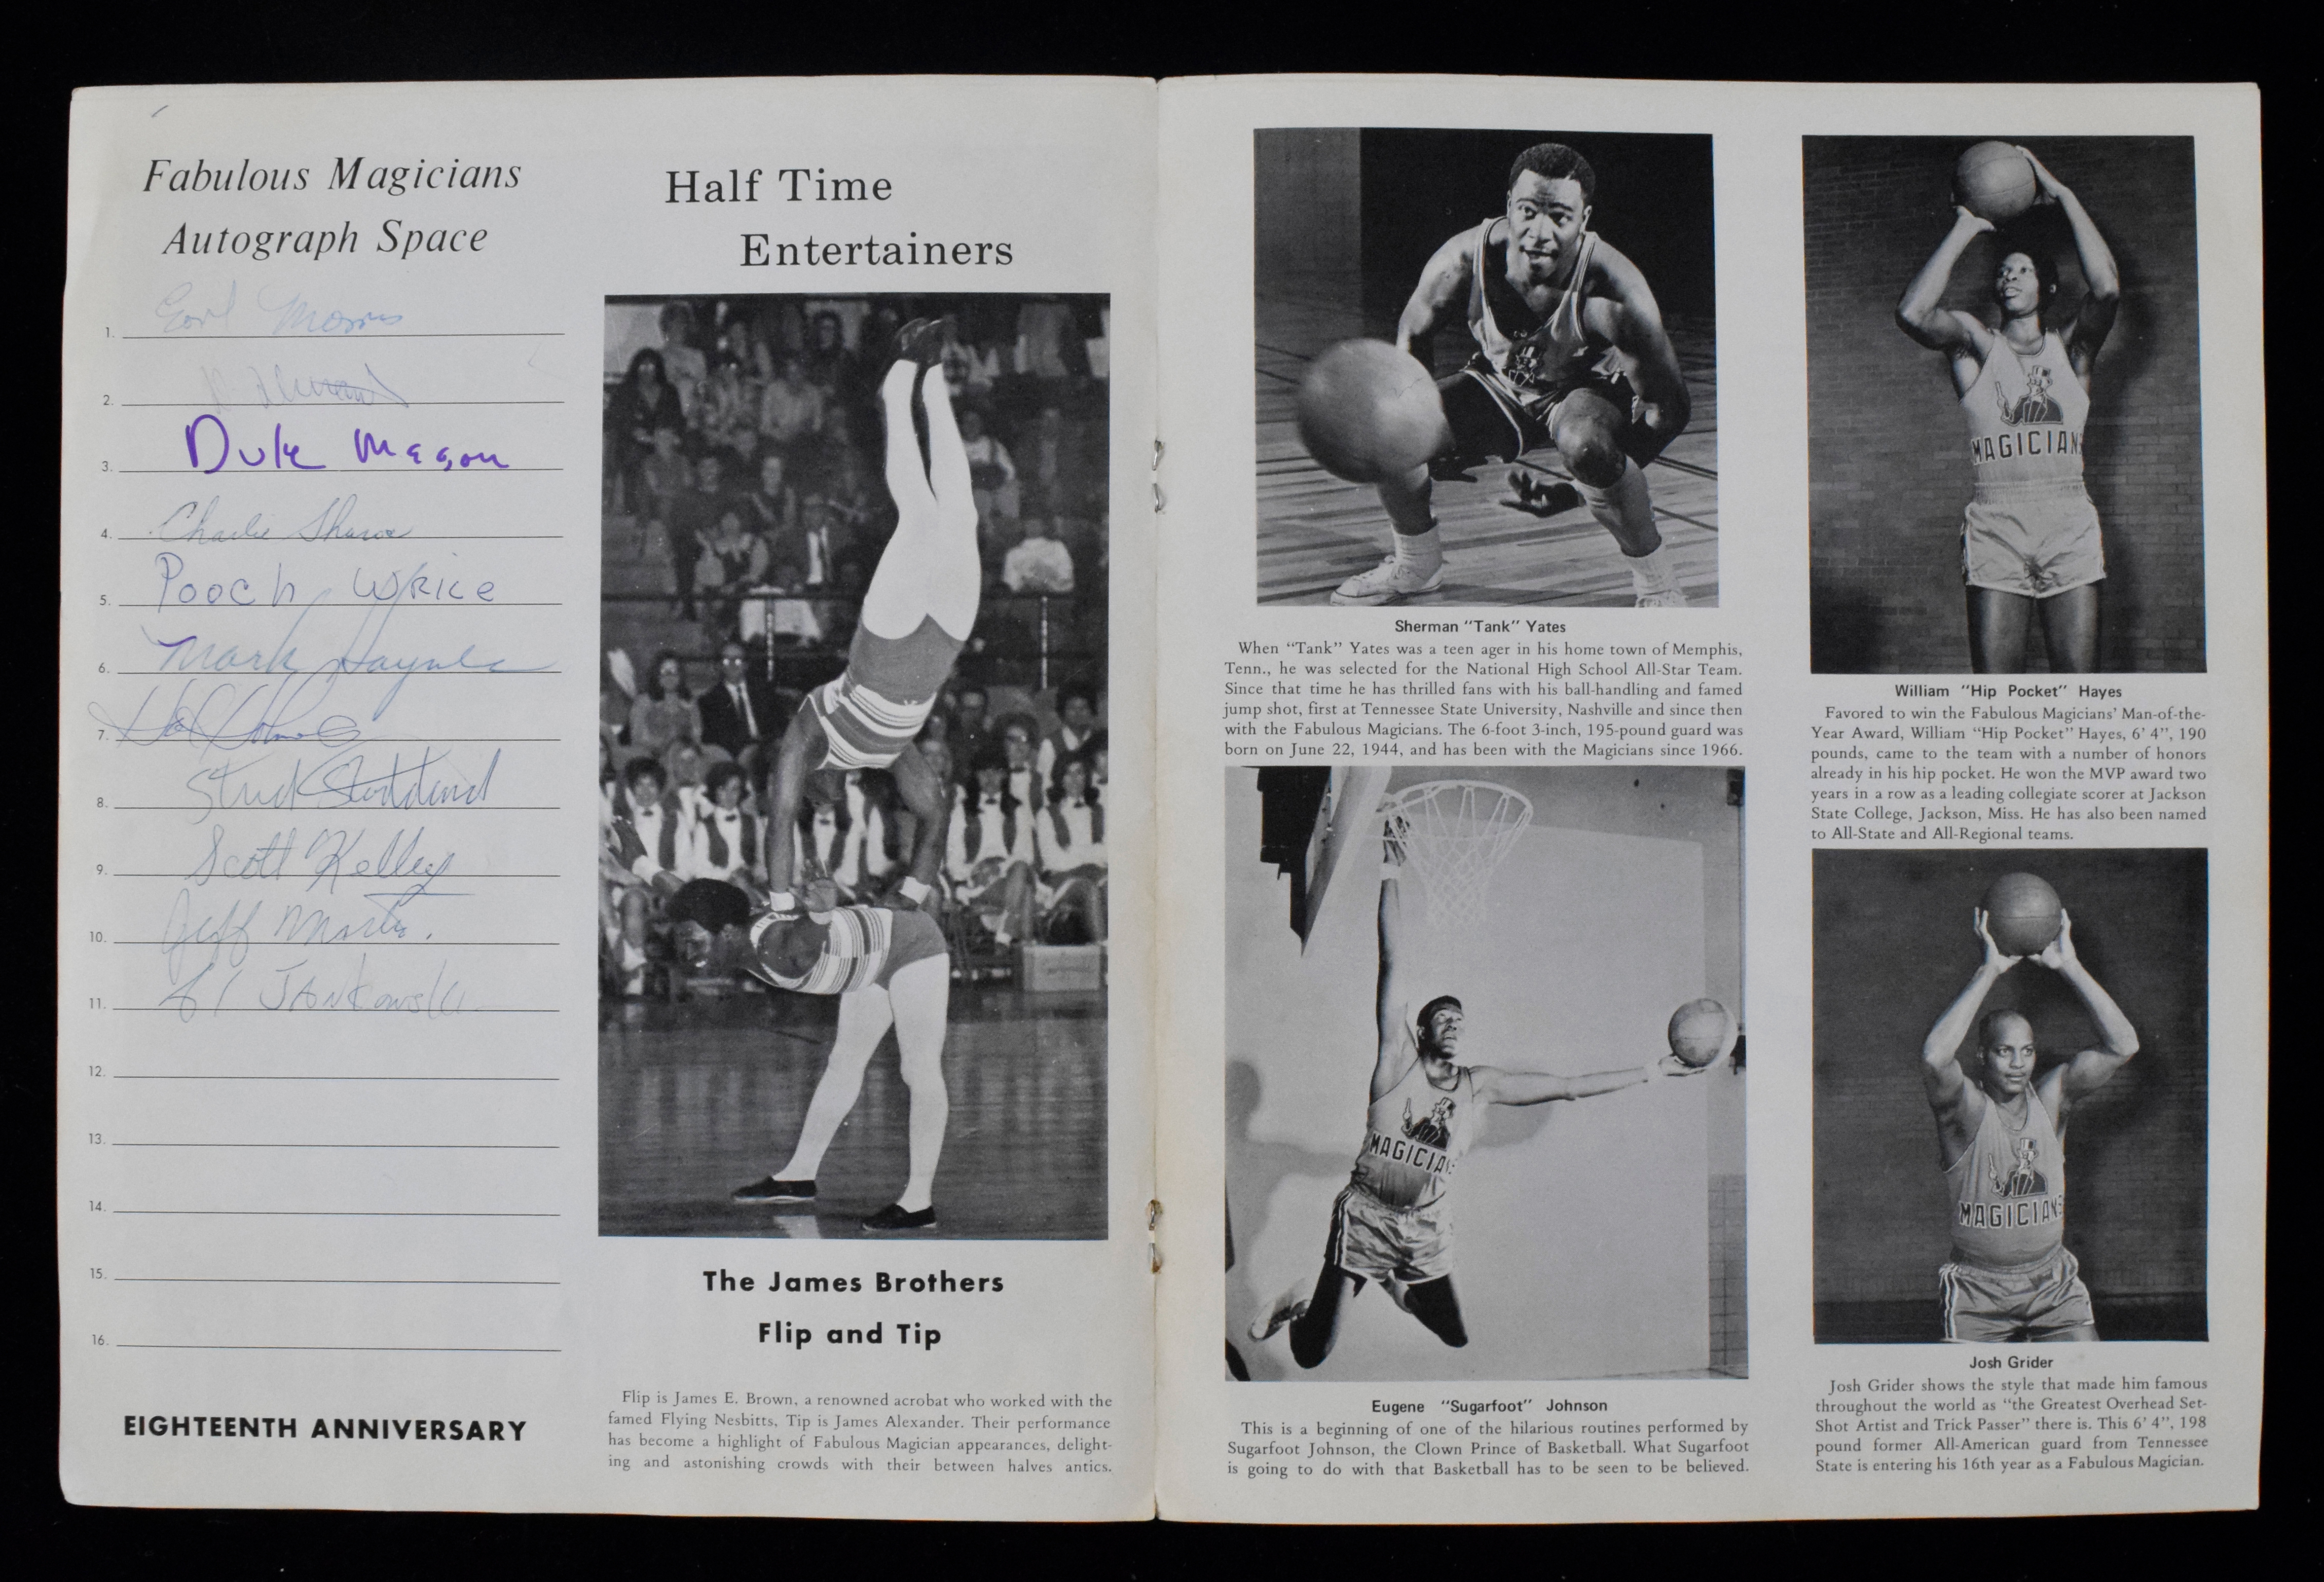 Fabulous Magicians
Autograph Space
1. Earl Morris
2.
3. Duke Mason
4. Charlie Sharoe
5. Pooch Wrice
6. Mark Haynes
7. Hal
8. Stud
9. Scott Kelley
10. Jeff Martin.
11. Al JANKowski
12.
13.
14.
15.
16.
EIGHTEENTH ANNIVERSARY
Half Time
Entertainers
The James Brothers
Flip and Tip
Flip is James E. Brown, a renowned acrobat who worked with the
famed Flying Nesbitts, Tip is James Alexander. Their performance
has become a highlight of Fabulous Magician appearances, delight-
ing and astonishing crowds with their between halves antics.
Sherman "Tank" Yates
When "Tank" Yates was a teen ager in his home town of Memphis,
Tenn., he was selected for the National High School All-Star Team.
Since that time he has thrilled fans with his ball-handling and famed
jump shot, first at Tennessee State University, Nashville and since then
with the Fabulous Magicians. The 6-foot 3-inch, 195-pound guard was
born on June 22, 1944, and has been with the Magicians since 1966.
MAGICIANS
Eugene "Sugarfoot" Johnson
This is a beginning of one of the hilarious routines performed by
Sugarfoot Johnson, the Clown Prince of Basketball. What Sugarfoot
is going to do with that Basketball has to be seen to be believed.
MAGICIANS
William "Hip Pocket" Hayes
Favored to win the Fabulous Magicians' Man-of-the-
Year Award, William "Hip Pocket" Hayes, 6' 4", 190
pounds, came to the team with a number of honors
already in his hip pocket. He won the MVP award two
years in a row as a leading collegiate scorer at Jackson
State College, Jackson, Miss. He has also been named
to All-State and All-Regional teams.
MAGICIANS
Josh Grider
Josh Grider shows the style that made him famous
throughout the world as "the Greatest Overhead Set-
Shot Artist and Trick Passer" there is. This 6' 4", 198
pound former All-American guard from Tennessee
State is entering his 16th year as a Fabulous Magician.